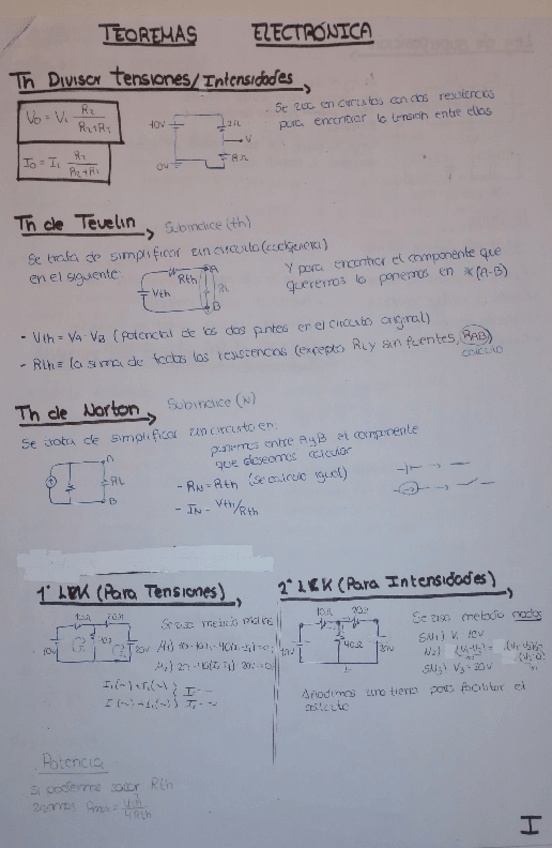 TEOREMAS ELECTRÓNICA
Th Divisor Tensiones/Intensidades
Vo = V1 R2 / R2+R1
Io = I1 R2 / R2+R1
10V
2Ω
V
8Ω
0V
Se usa en circuitos con dos resistencias
para encontrar la tensión entre ellas
Th de Tevelin Subíndice (th)
Se trata de simplificar un circuito (cualquiera)
en el siguiente:
Rth
A
Vth
RL
B
Y para encontrar el componente que
queremos lo ponemos en * (A-B)
- Vth = VA - VB (potencial de los dos puntos en el circuito original)
- Rth = la suma de todas las resistencias (excepto RL y sin fuentes, RAB)
cálculo
Th de Norton Subíndice (N)
Se trata de simplificar un circuito en:
ponemos entre A y B el componente
que deseamos calcular
A
RL
B
- RN = Rth (se calcula igual)
- IN = Vth/Rth
1ª LCK (Para Tensiones)
10Ω 20Ω
10V
20V
Se usa método mallas
2ª LCK (Para Intensidades)
10Ω 20Ω
10V
40Ω
20V
Se usa metodo nodos
V1 = 10V
V3 = 20V
Añadimos una tierra para facilitar el
cálculo
Potencia
Si podemos sacar Rth
usamos
4Rth
I